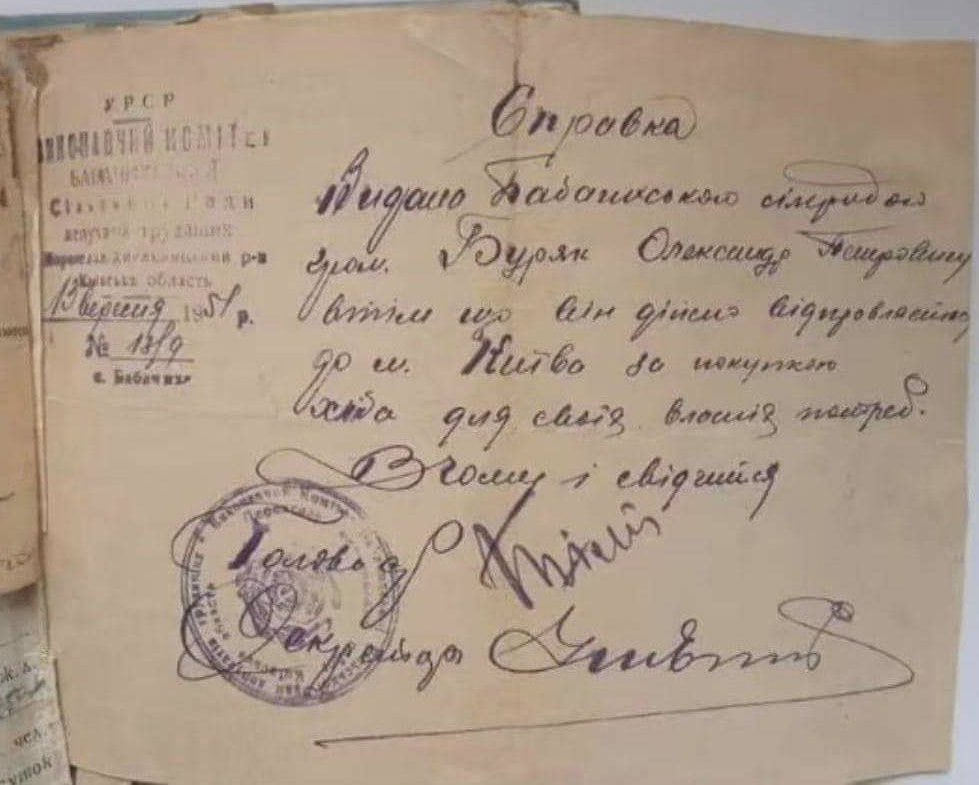 УРСР
ВИКОНАВЧИЙ КОМІТЕТ
Сільської Ради
депутатів трудящих
р-н
Київська область
13 вересня 1951 р.
№ 1319
с. Бабачиха
Справка
Видано Бабачиською сільрадою
гром. Буряк Олександр Петровичу
втім що він дійсно відправляється
до м. Київа за покупкою
хліба для своїх власних потреб.
В чому і свідчится
Голова с/р
Секретар